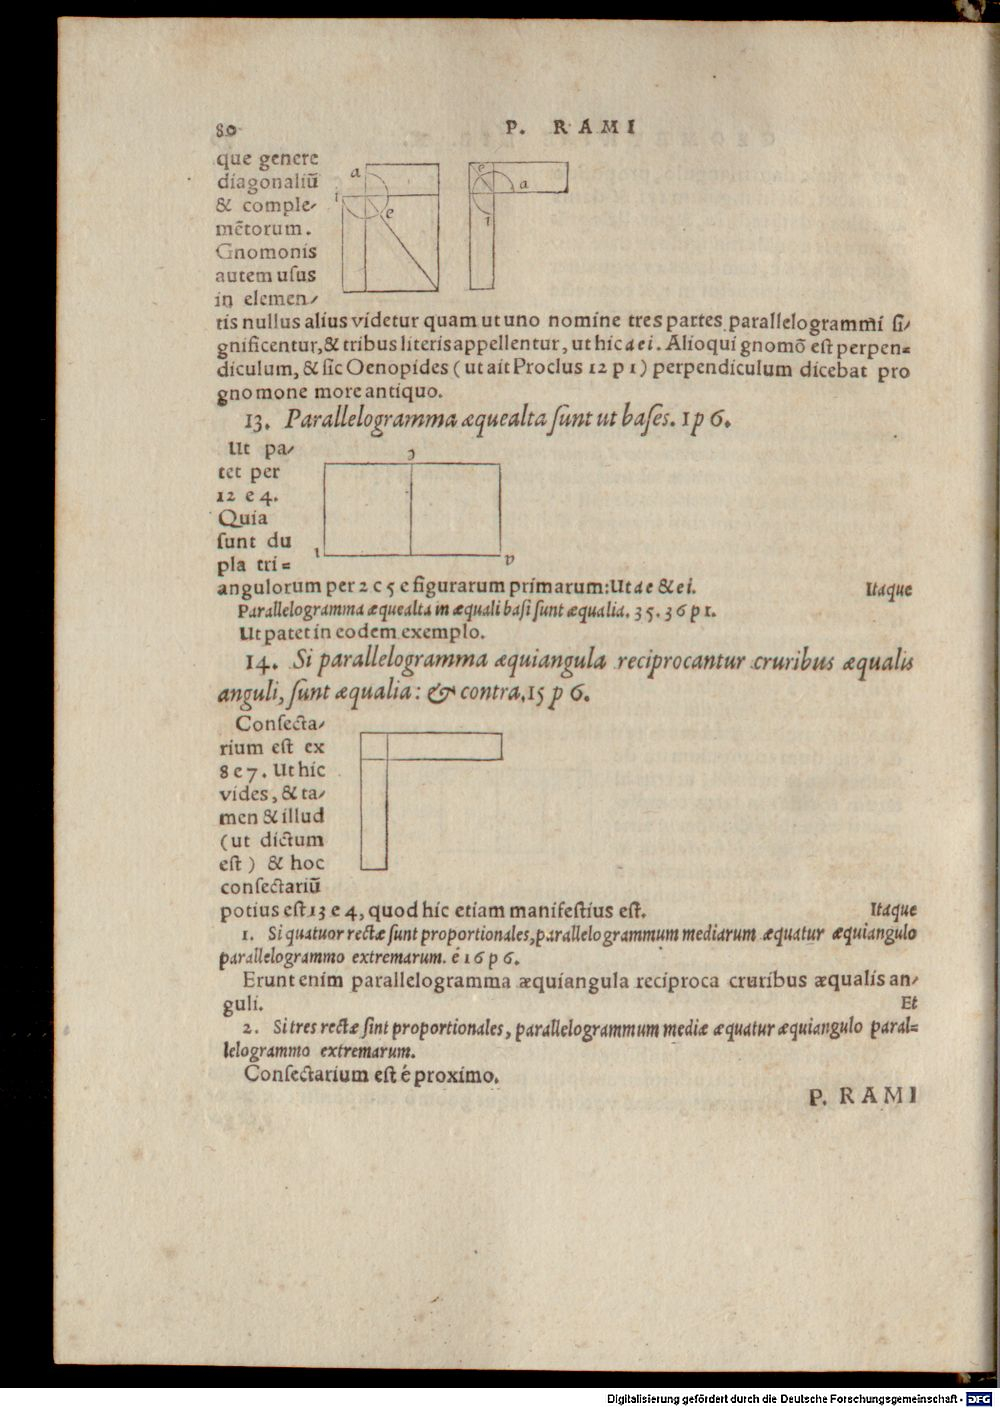 80 P. RAMI
que genere
diagonaliũ
& comple-
mẽtorum.
Gnomonis
autem usus
in elemen-
a
i
e
e
a
i
tis nullus alius videtur quam ut uno nomine tres partes parallelogrammi si-
gnificentur, & tribus literis appellentur, ut hic a e i. Alioqui gnomõ est perpen=
diculum, & sic Oenopides (ut ait Proclus 12 p 1) perpendiculum dicebat pro
gnomone more antiquo.
13. Parallelogramma æquealta sunt ut bases. 1 p 6.
Ut pa-
tet per
12 e 4.
Quia
sunt du
pla tri=
ı
angulorum per 2 c 5 e figurarum primarum: Ut a e & e i. Itaque
Parallelogramma æquealta in æquali basi sunt æqualia. 35. 36 p 1.
Ut patet in eodem exemplo.
14. Si parallelogramma æquiangula reciprocantur cruribus æqualis
anguli, sunt æqualia: & contra. 15 p 6.
Consecta-
rium est ex
8 e 7. Ut hic
vides, & ta-
men & illud
(ut dictum
est) & hoc
consectariũ
potius est 13 e 4, quod hic etiam manifestius est. Itaque
1. Si quatuor rectæ sunt proportionales, parallelogrammum mediarum æquatur æquiangulo
parallelogrammo extremarum. é 16 p 6.
Erunt enim parallelogramma æquiangula reciproca cruribus æqualis an-
guli. Et
2. Si tres rectæ sint proportionales, parallelogrammum mediæ æquatur æquiangulo paral=
lelogrammo extremarum.
Consectarium est é proximo.
P. RAMI
Digitalisierung gefördert durch die Deutsche Forschungsgemeinschaft - DFG